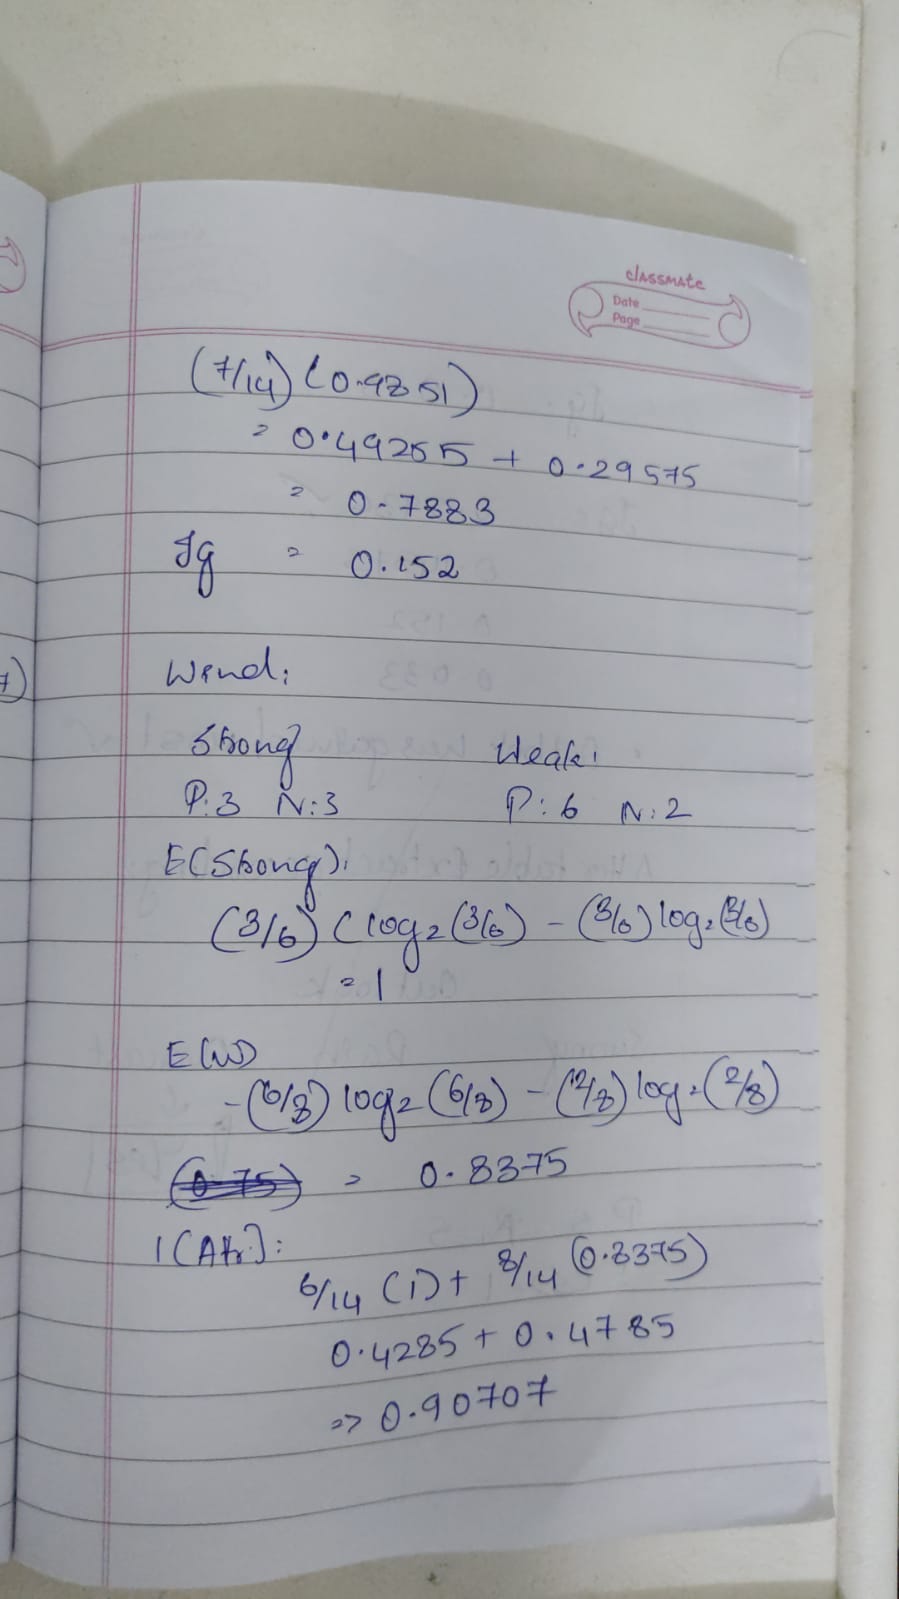 classmate
Date
Page
(7/14) (0.9851)
= 0.49255 + 0.29575
= 0.7883
Ig = 0.152
Wind:
Strong Weak:
P:3 N:3 P:6 N:2
E(Strong):
(3/6) (log₂(3/6) - (3/6) log₂(3/6)
= 1
E(W)
-(6/8) log₂ (6/8) - (2/8) log₂(2/8)
= 0.8375
I(Attr):
6/14 (1) + 8/14 (0.8375)
0.4285 + 0.4785
=> 0.90707